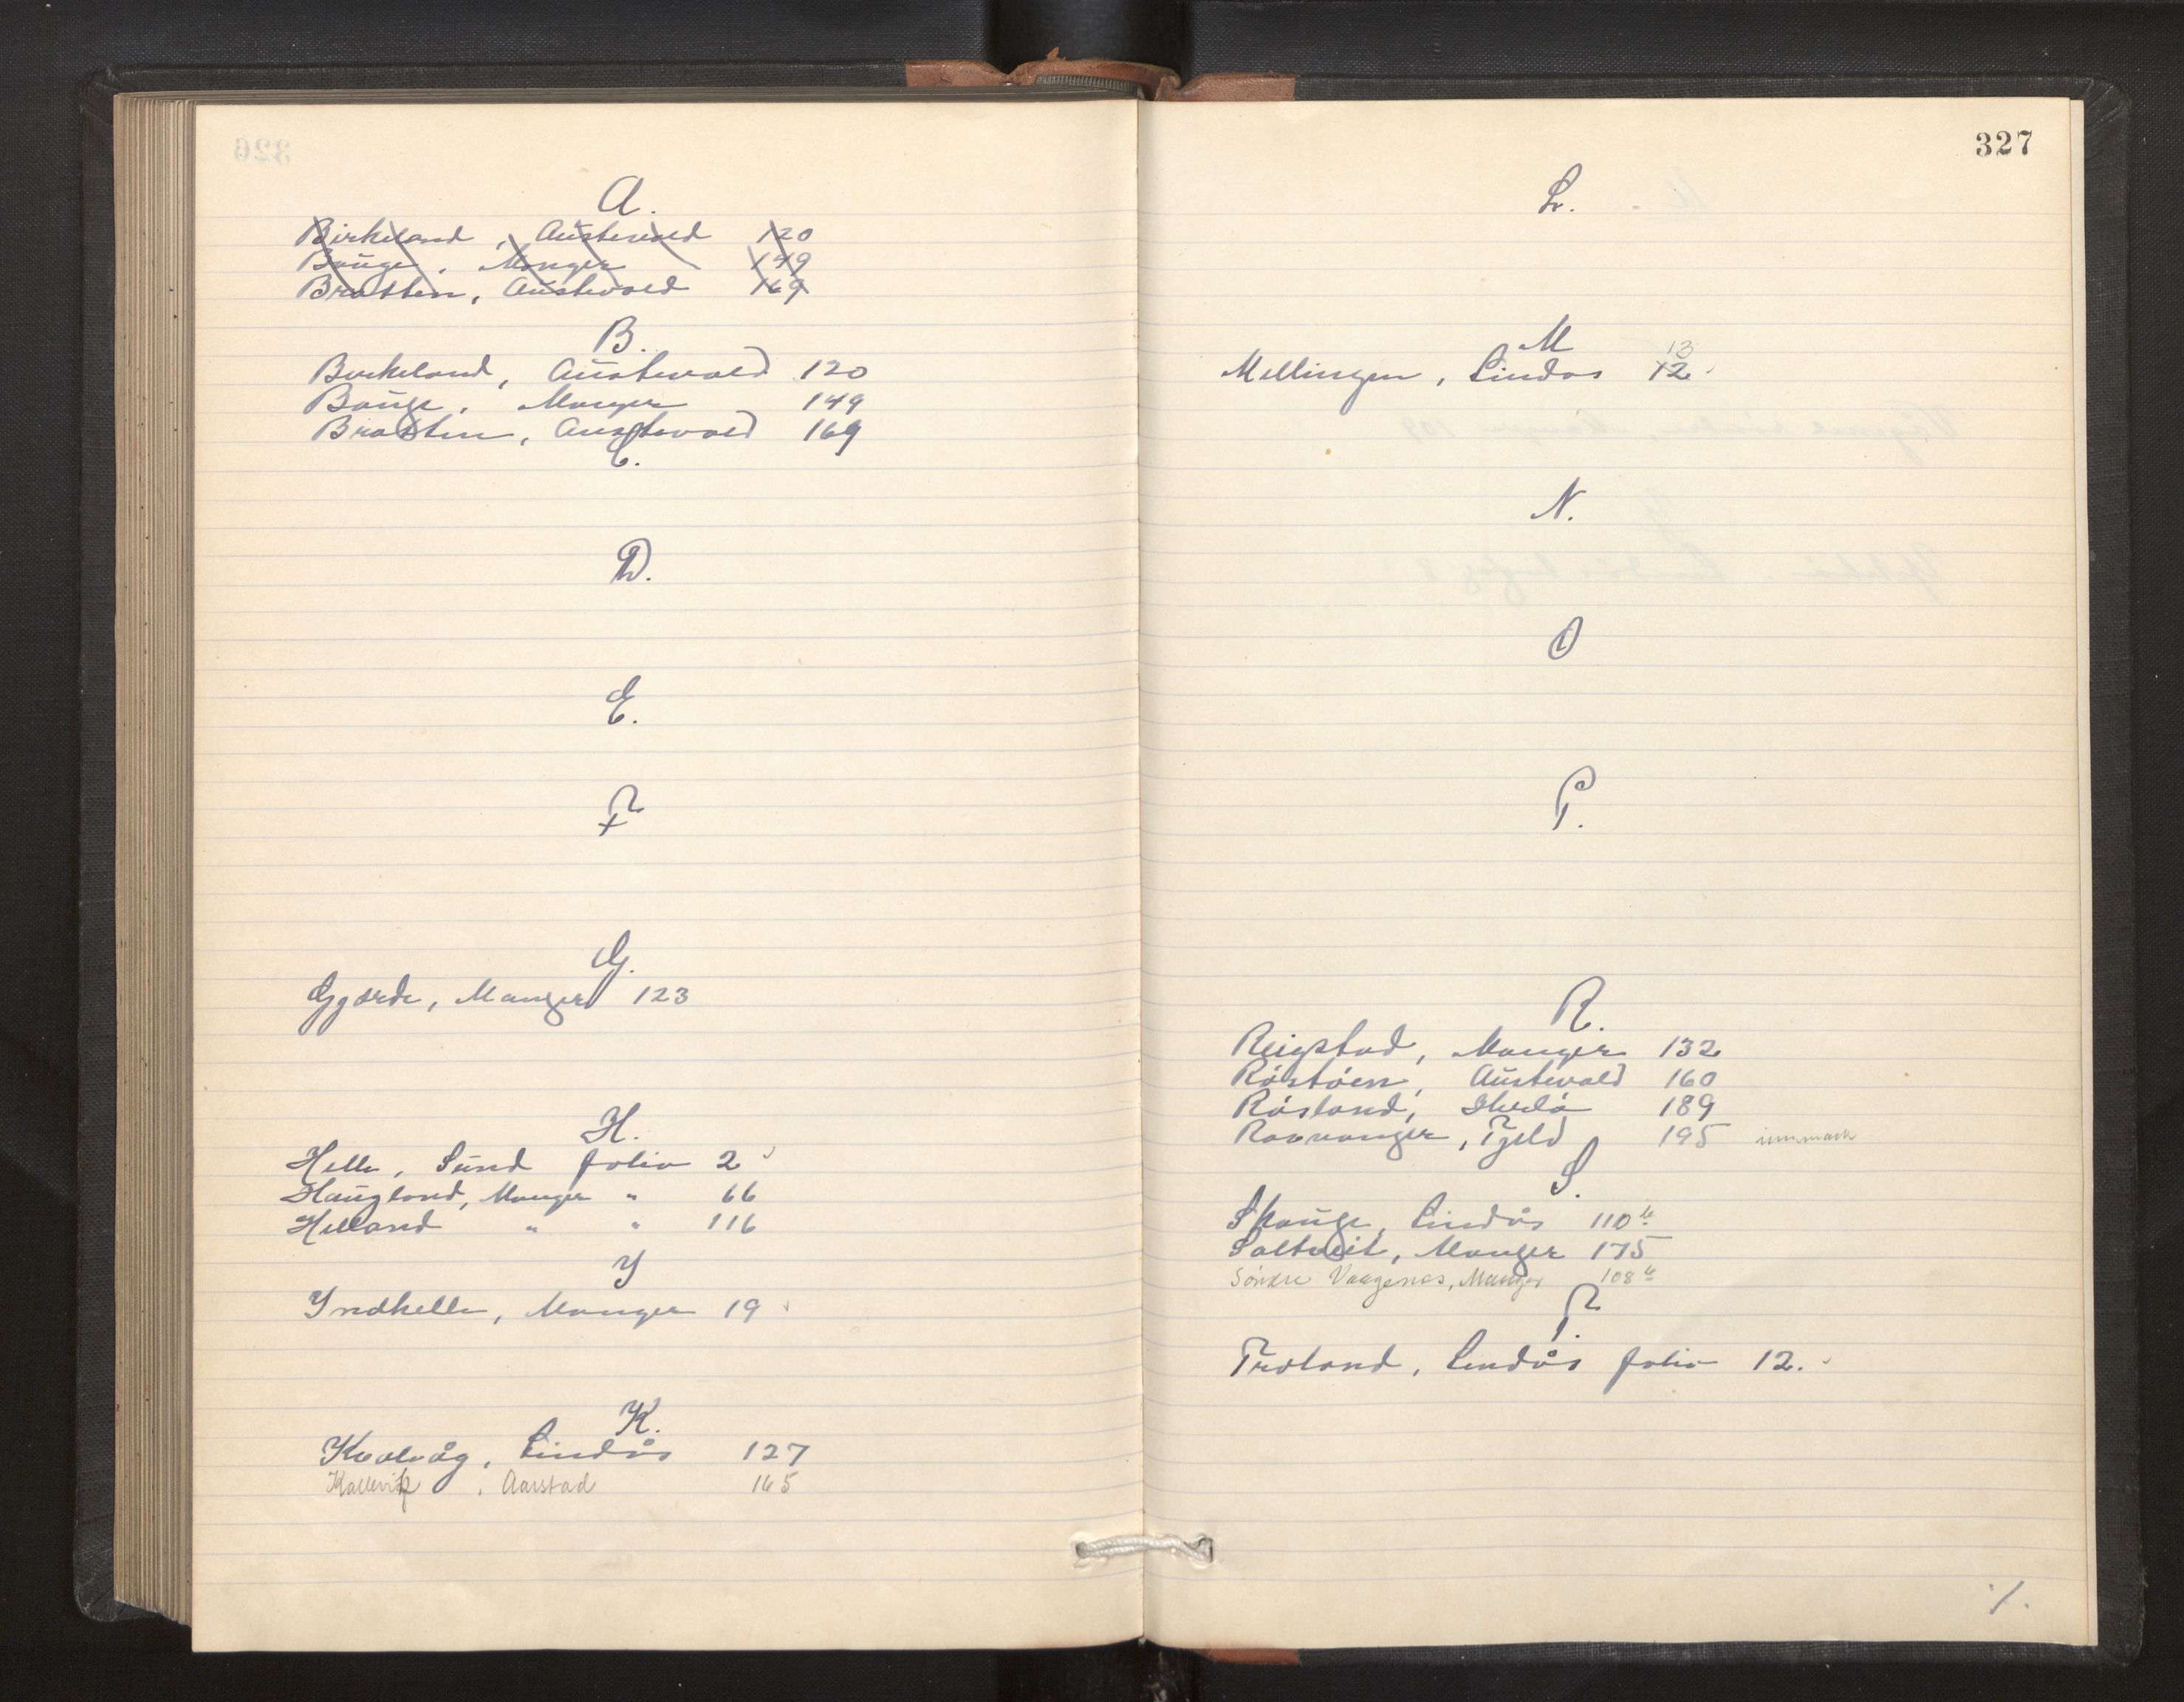 A.
Birkeland, Austevold 120
Bauge, Manger 149
Bratten, Austevold 169
B.
Birkeland, Austevold 120
Bauge, Manger 149
Bratten, Austevold 169
C.
D.
E.
F
G.
Gjærde, Manger 123
H.
Helle, Sund folio 2
Haugland, Manger " 66
Helland " " 116
Y
Yndhelle, Manger 19
K.
Kvalvåg, Lindås 127
Kallevik, Aarstad 165
327
L.
M
13
Mellingen, Lindås 12
N.
O
P.
R.
Reigstad, Manger 132
Röstöen, Austevold 160
Rösland, Herla 189
Ramvanger, Fjeld 195 innmark
S.
Skauge, Lindås 110 b
Saltveit, Manger 175
Söndre Vaagenes, Manger 108 b
T.
Troland, Lindås folio 12.
./.